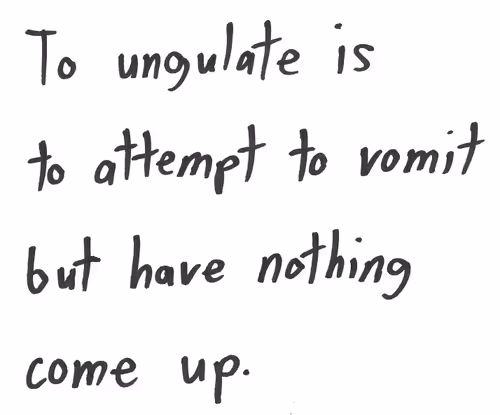 To ungulate is
to attempt to vomit
but have nothing
come up.